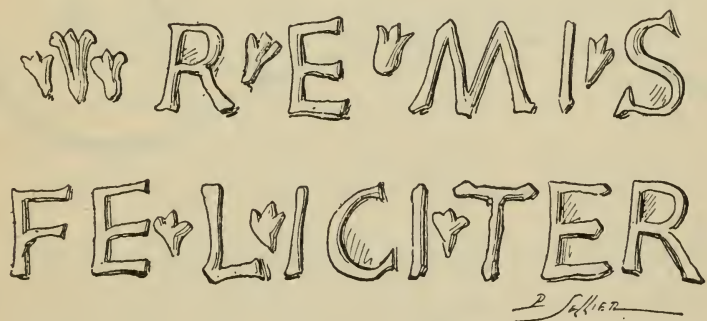 REMIS
FELICITER
P. Sellier